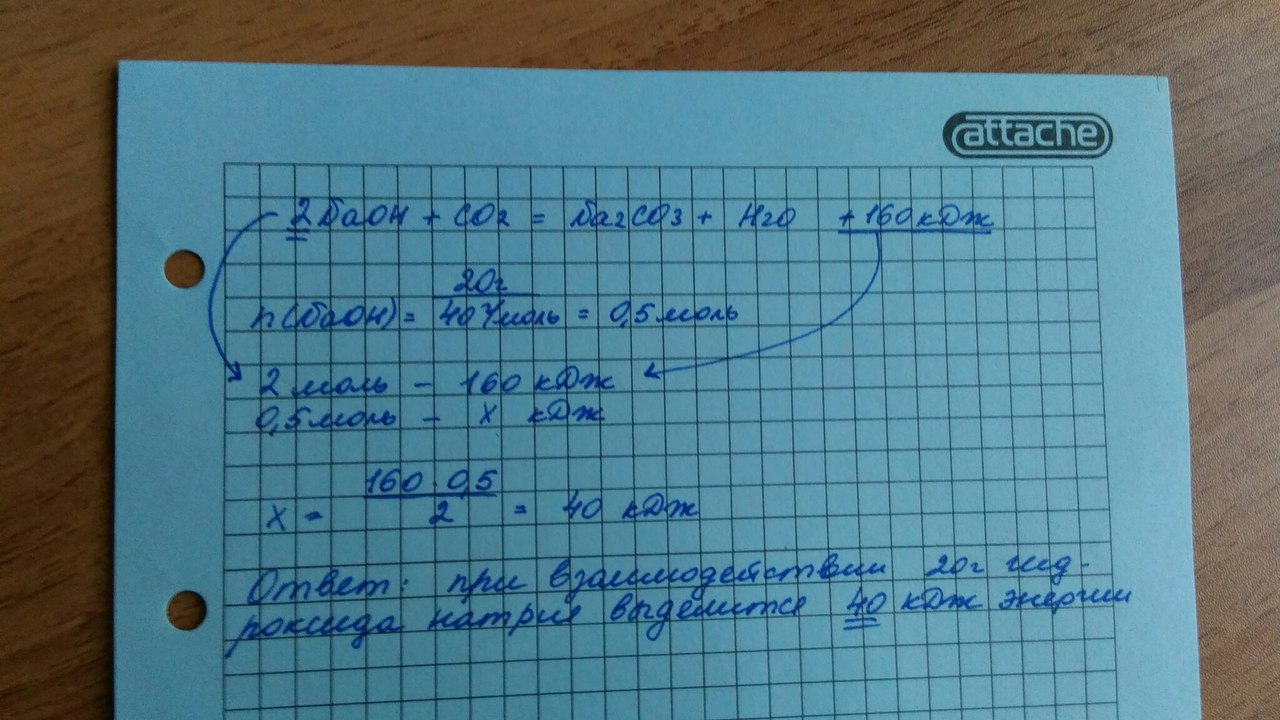 attache
2NaOH + CO2 = Na2CO3 + H2O + 160 кДж
20г
n(NaOH) = 40 г/моль = 0,5 моль
2 моль – 160 кДж
0,5 моль – x кДж
160 · 0,5
x = 2 = 40 кДж
Ответ: при взаимодействии 20г гид-
роксида натрия выделится 40 кДж энергии